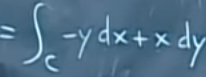 = ∫_C -y dx + x dy